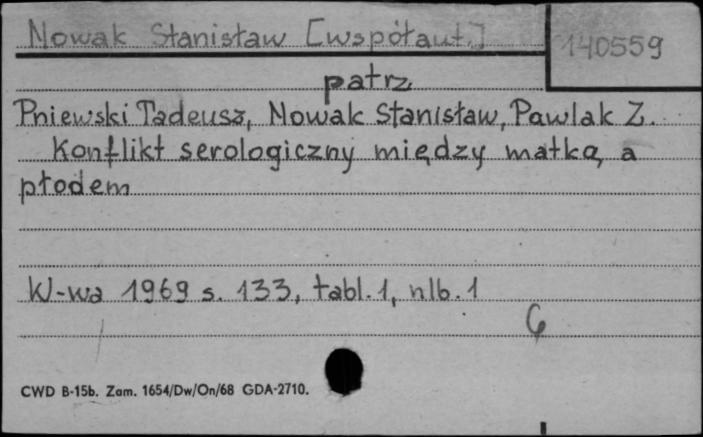 Nowak Stanisław [współaut.]
140559
patrz
Pniewski Tadeusz, Nowak Stanisław, Pawlak Z.
Konflikt serologiczny między matką a
płodem
W-wa 1969 s. 133, tabl. 1, nlb. 1
CWD B-15b. Zam. 1654/Dw/On/68 GDA-2710.